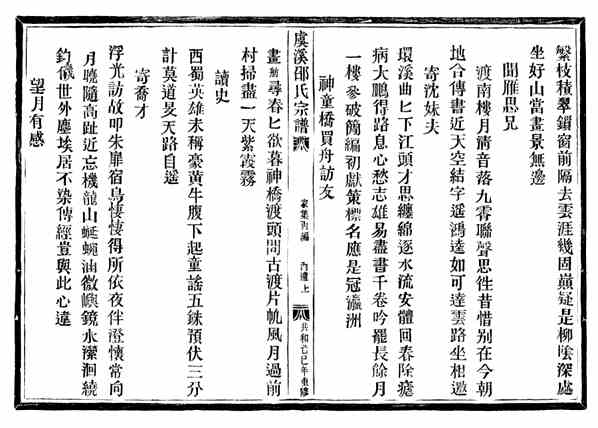 繁枝積翠鎖窗前隔去雲涯幾固巔疑是柳陰深處
坐好山當畫景無邊
聞雁思兄
渡南樓月淸音落九霄聯聲思徃昔惜别在今朝
地合傳書近天空結字遥鴻逵如可達雲路坐相邀
寄沈妹夫
環溪曲匕下江頭才思纏綿逐水流安體回春除瘧
病大鵬得路息心愁志雄易盡書千卷吟罷長餘月
一樓參破簡編初獻策標名應是冠瀛洲
神童橋買舟訪友
虞溪邵氏宗譜
內還上
共和己巳年重修
畫舫尋春匕欲暮神橋渡頭問古渡片帆風月過前
村掃盡一天紫霞霧
讀史
西蜀英雄未稱豪黃牛腹下起童謠五銖預伏三分
計莫道旻天路自遥
寄喬才
浮光訪故叩朱扉宿鳥悽悽得所依夜伴澄懷常向
月曉隨高趾近忘機龍山蜒蜿油微嶼鏡水瀠洄繞
釣儀世外塵埃居不染傳經豈與此心違
望月有感